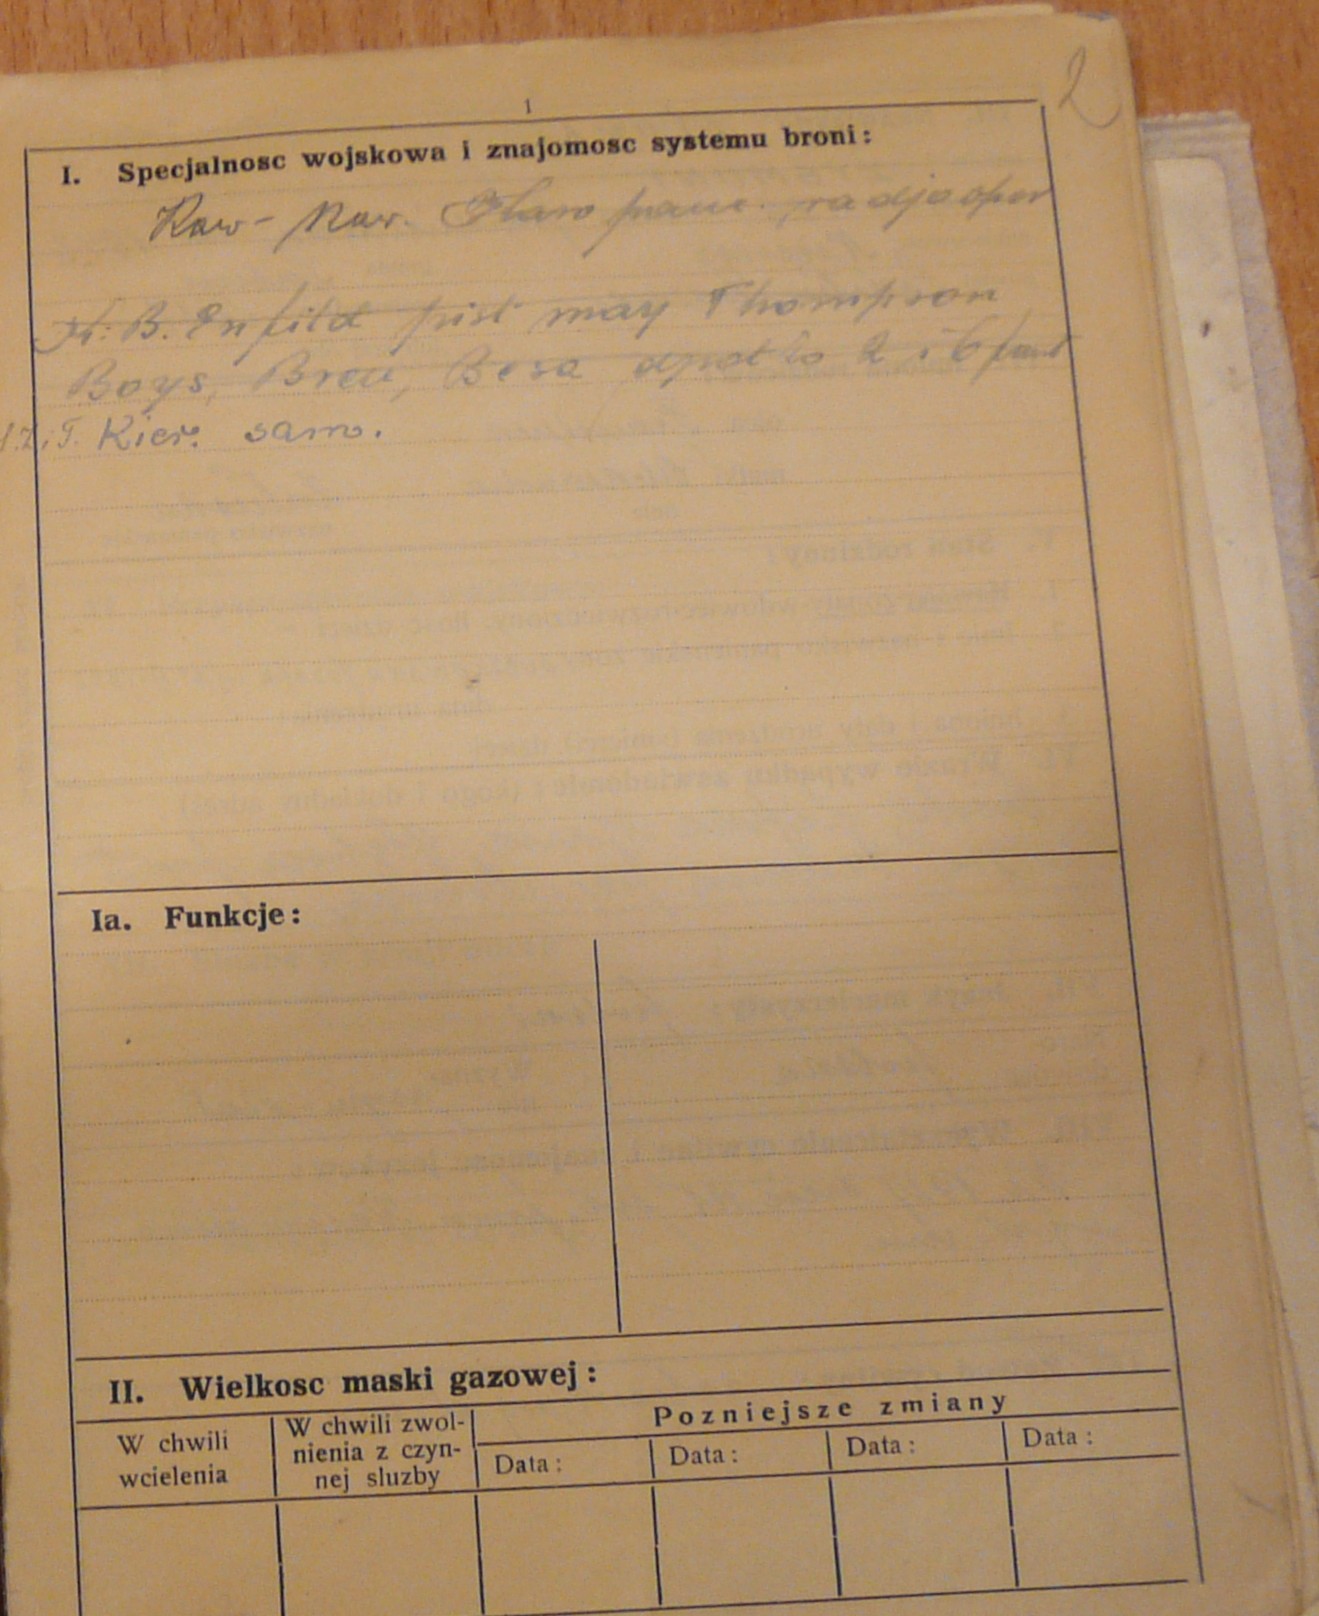 1
2
I. Specjalnosc wojskowa i znajomosc systemu broni:
Kaw- panc. radjooper
K. B. Enfild pist masz Thompson
Boys, Bren, Besa dział 2 i 6 funt
Kier. sam.
Ia. Funkcje:
II. Wielkosc maski gazowej:
W chwili wcielenia
W chwili zwol-
nienia z czyn-
nej sluzby
Pozniejsze zmiany
Data: Data: Data: Data: